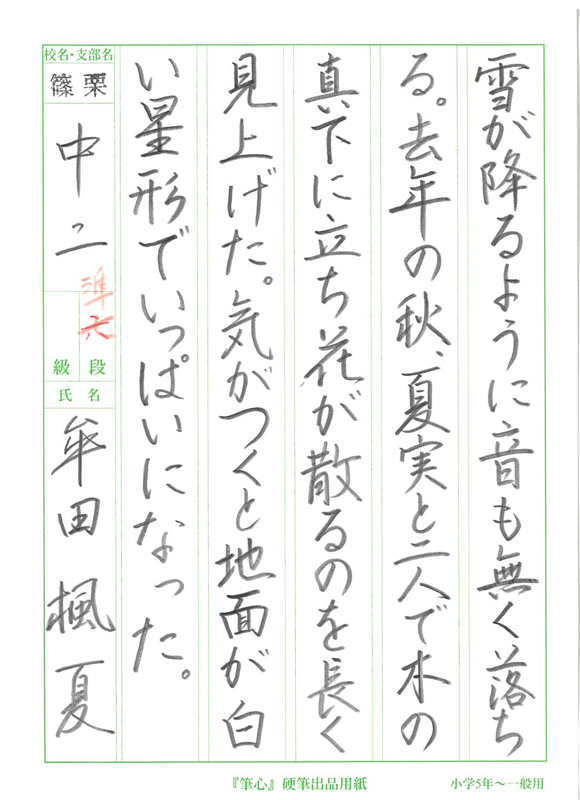 雪が降るように音も無く落ち
る。去年の秋、夏実と二人で木の
真下に立ち花が散るのを長く
見上げた。気がつくと地面が白
い星形でいっぱいになった。
校名・支部名
篠栗
中二
準六
段級
氏名
牟田楓夏
『筆心』硬筆出品用紙
小学5年〜一般用